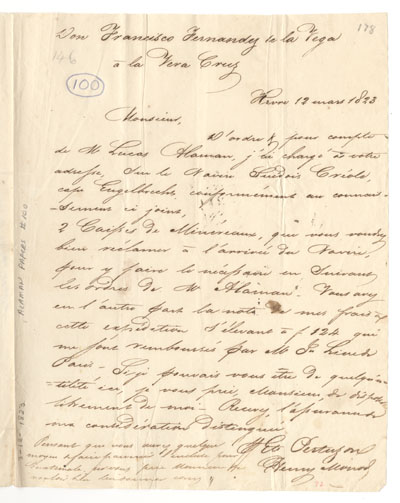 Don Francisco Fernandez de la Vega
178
146
à la Vera Cruz
100
Havre 12 mars 1823
Monsieur,
D'ordre & pour compte
de Mr Lucas Alaman, j'ai chargé à votre
adresse, sur le Navire Suédois Créole,
cap. Engelbrecht, conformément au connais-
sement ci joint,
2 Caisses de Minéraux, que vous voudrez
bien réclamer à l'arrivée du Navire,
pour y faire le nécessaire en suivant
les ordres de Mr Alaman. Vous avez
en l'autre part la note de mes frais
cette expédition s'élevant à f. 124 que
me font rembourser par Mr
Paris. Si je pouvais vous être de quelqu'u-
tilité ici, je vous prie, Monsieur, de disposer
librement de moi. Recevez l'assurance
ma considération distinguée.
Pendant que vous avez quelque
Henry Monod
moyen
je vous prie Monsieur de
ALAMAN PAPERS #100
1823